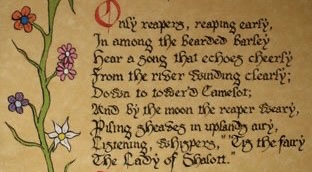 Only reapers, reaping early,
In among the bearded barley
Hear a song that echoes cheerly
From the river winding clearly;
Down to tower'd Camelot;
And by the moon the reaper weary,
Piling sheaves in uplands airy,
Listening, whispers, "'Tis the fairy
The Lady of Shalott."